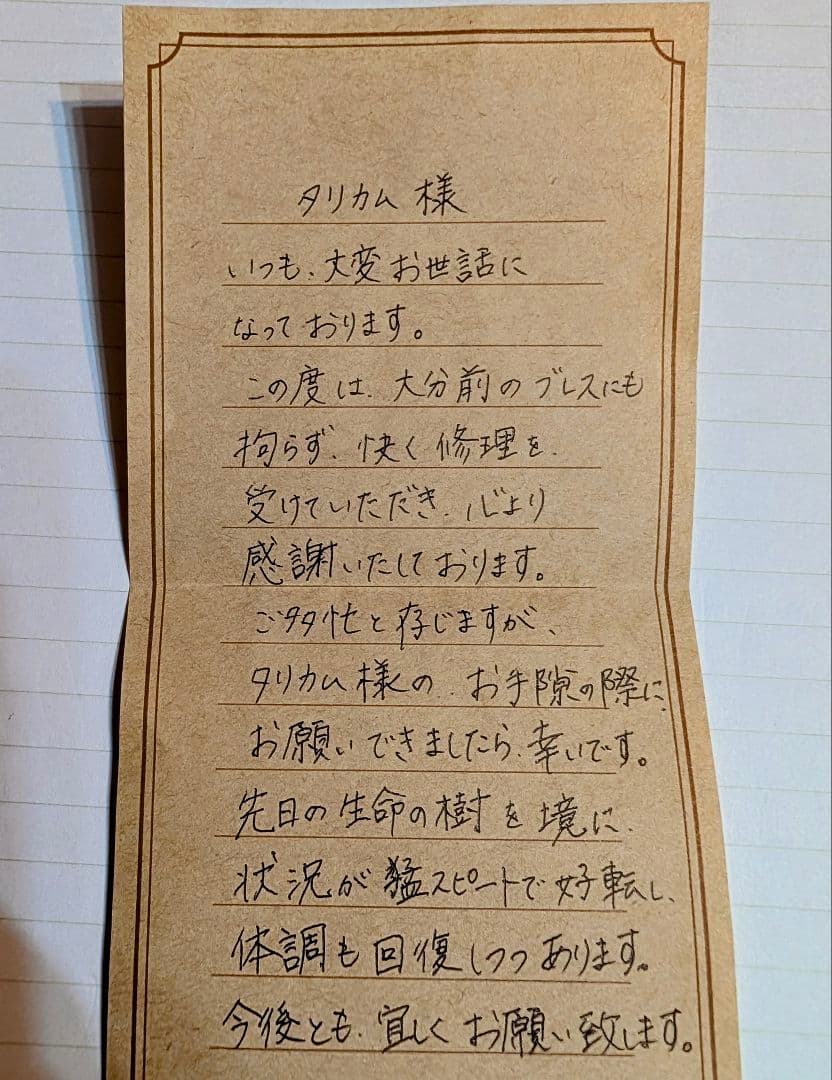 タリカム様
いつも、大変お世話に
なっております。
この度は、大分前のブレスにも
拘らず、快く修理を、
受けていただき、心より
感謝いたしております。
ご多忙と存じますが、
タリカム様の、お手隙の際に、
お願いできましたら、幸いです。
先日の生命の樹を境に、
状況が猛スピードで好転し、
体調も回復しつつあります。
今後とも、宜しくお願い致します。